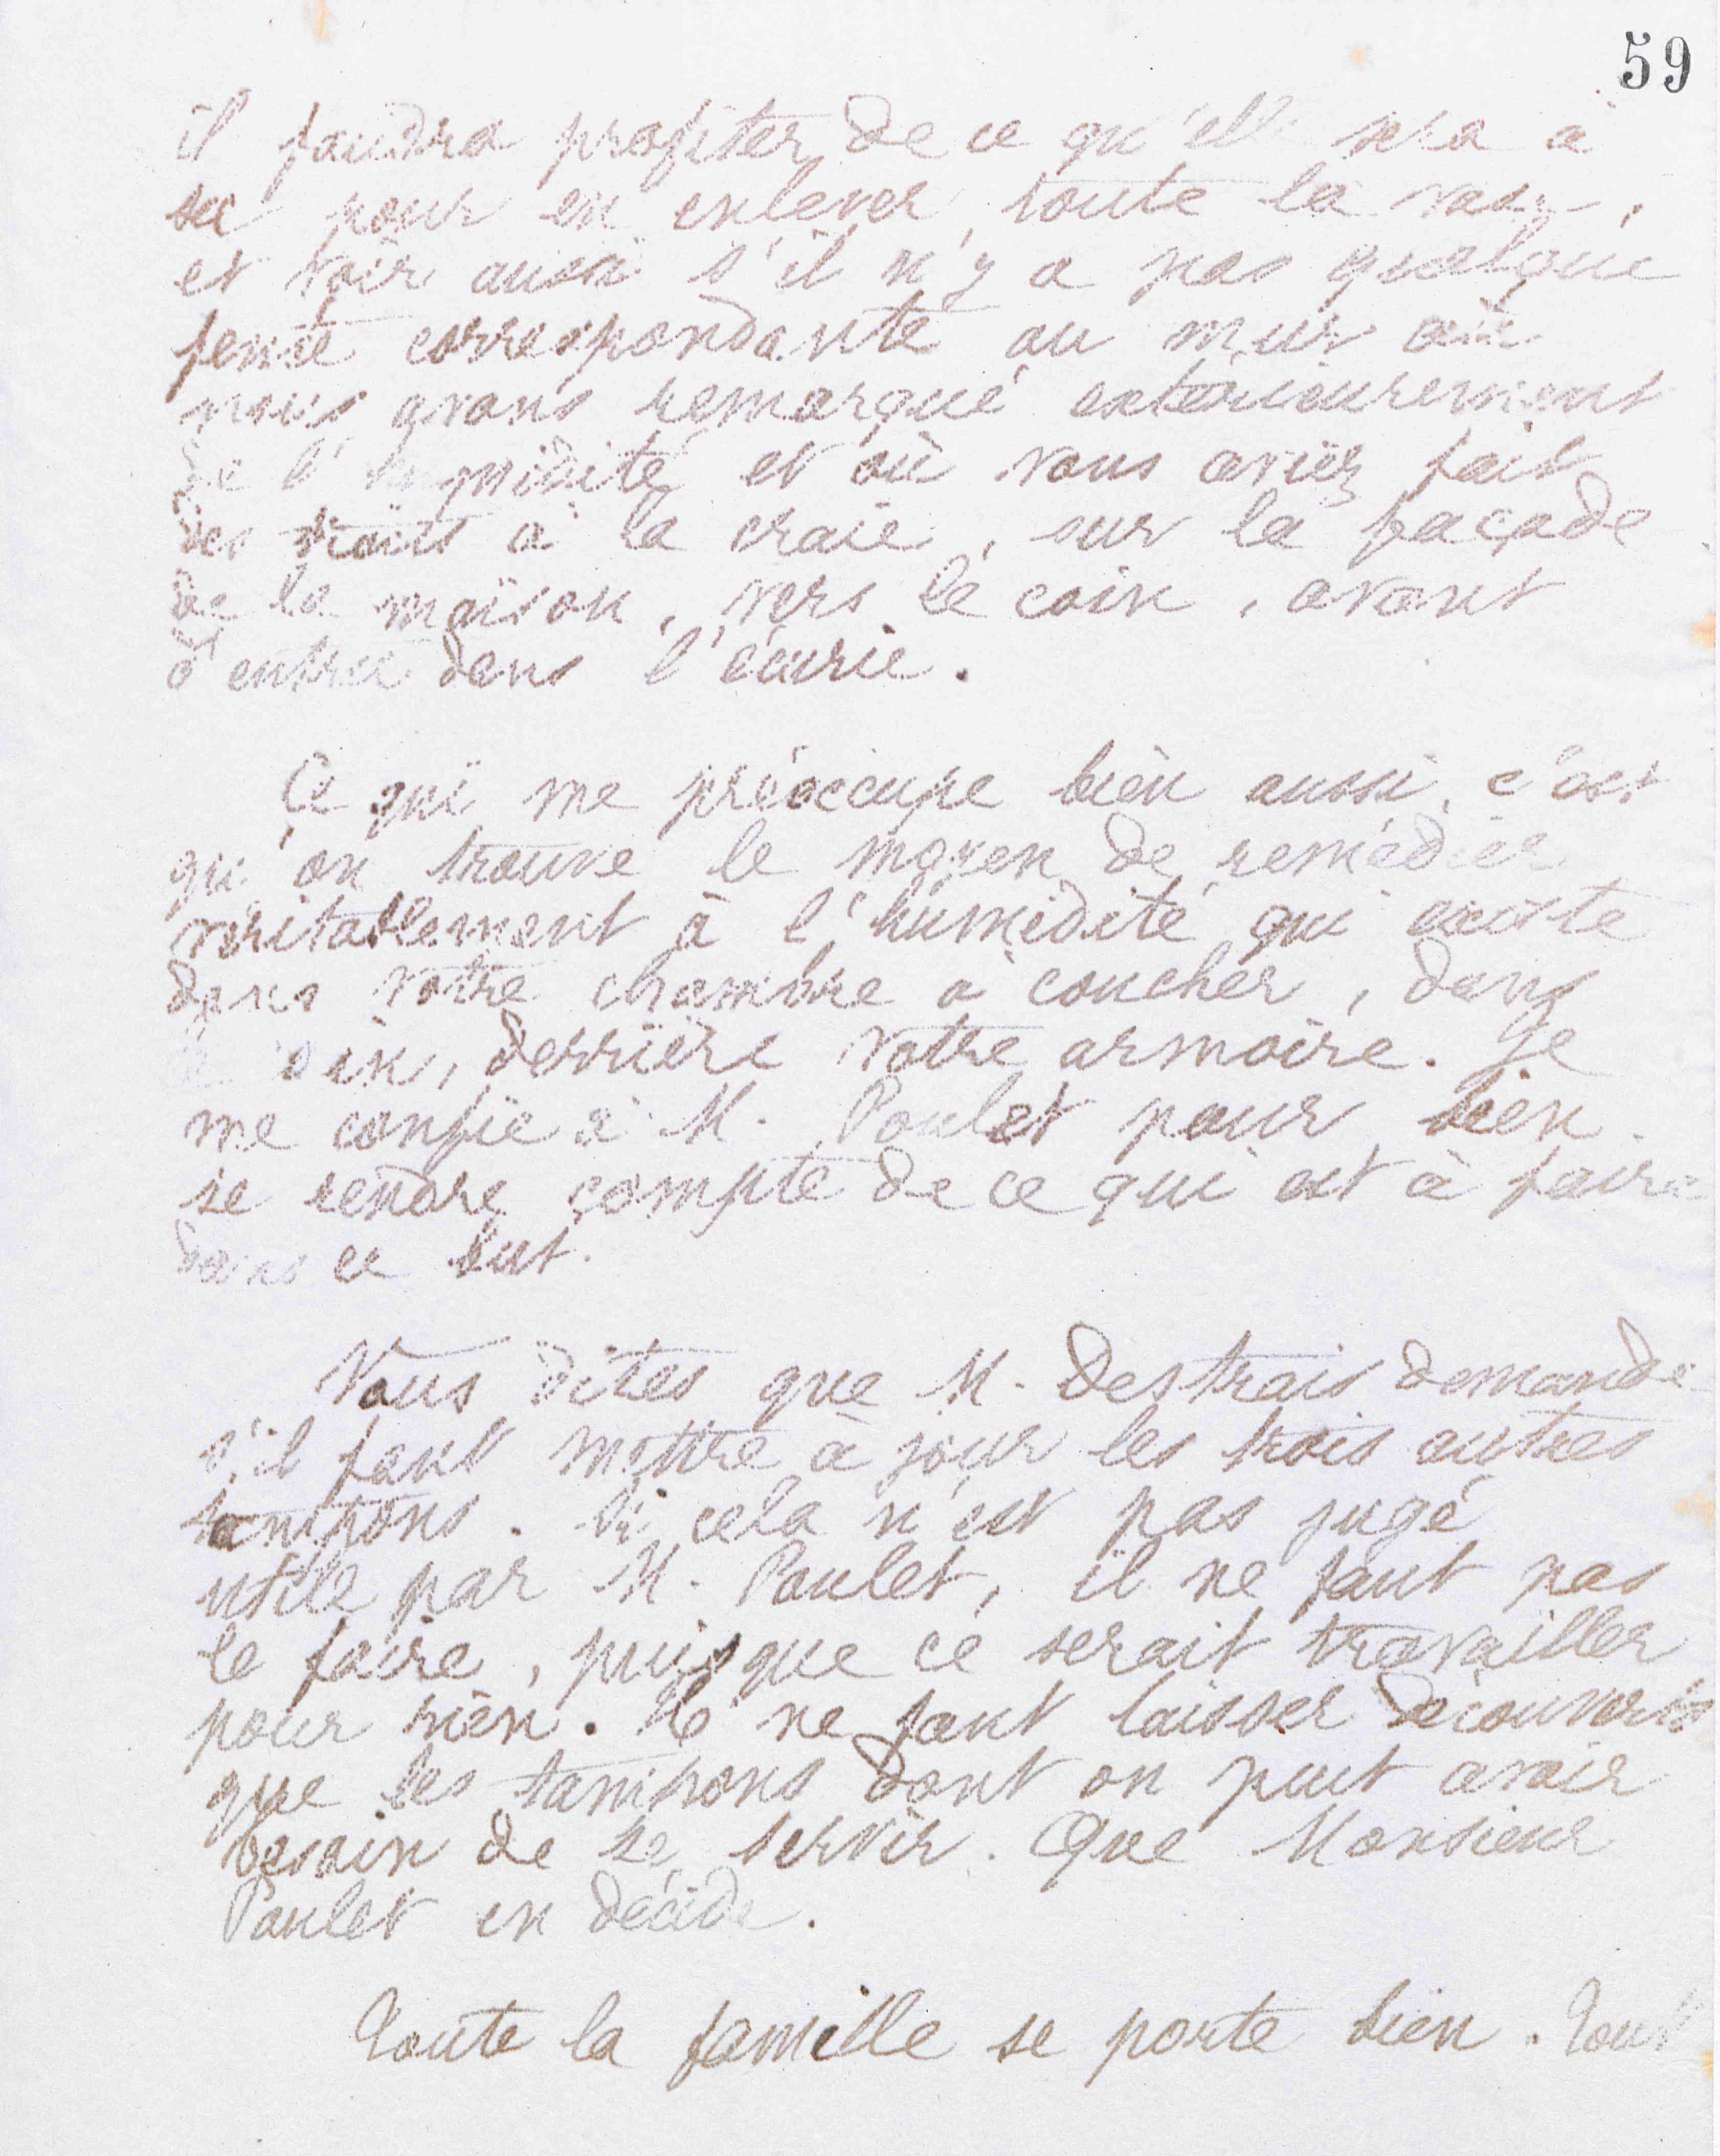 59
il faudra profiter de ce qu'elle sera à
sec pour en enlever toute la vase,
et voir aussi s'il n'y a pas quelque
fente correspondante au mur où
nous avons remarqué extérieurement
de l'humidité et où vous aviez fait
des traits à la craie, sur la façade
de la maison, vers le coin, avant
d'entrer dans l'écurie.
Ce qui me préoccupe bien aussi, c'est
qu'on trouve le moyen de remédier
véritablement à l'humidité qui existe
dans votre chambre à coucher, dans
le coin, derrière votre armoire. Je
me confie à M. Poulet pour bien
se rendre compte de ce qui est à faire
dans ce but.
Vous dites que M. Destrais demande
s'il faut mettre à jour les trois autres
tampons. Si cela n'est pas jugé
utile par M. Poulet, il ne faut pas
le faire, puisque ce serait travailler
pour rien. Il ne faut laisser découverts
que les tampons dont on peut avoir
besoin de se servir. Que Monsieur
Poulet en décide.
Toute la famille se porte bien. Tout